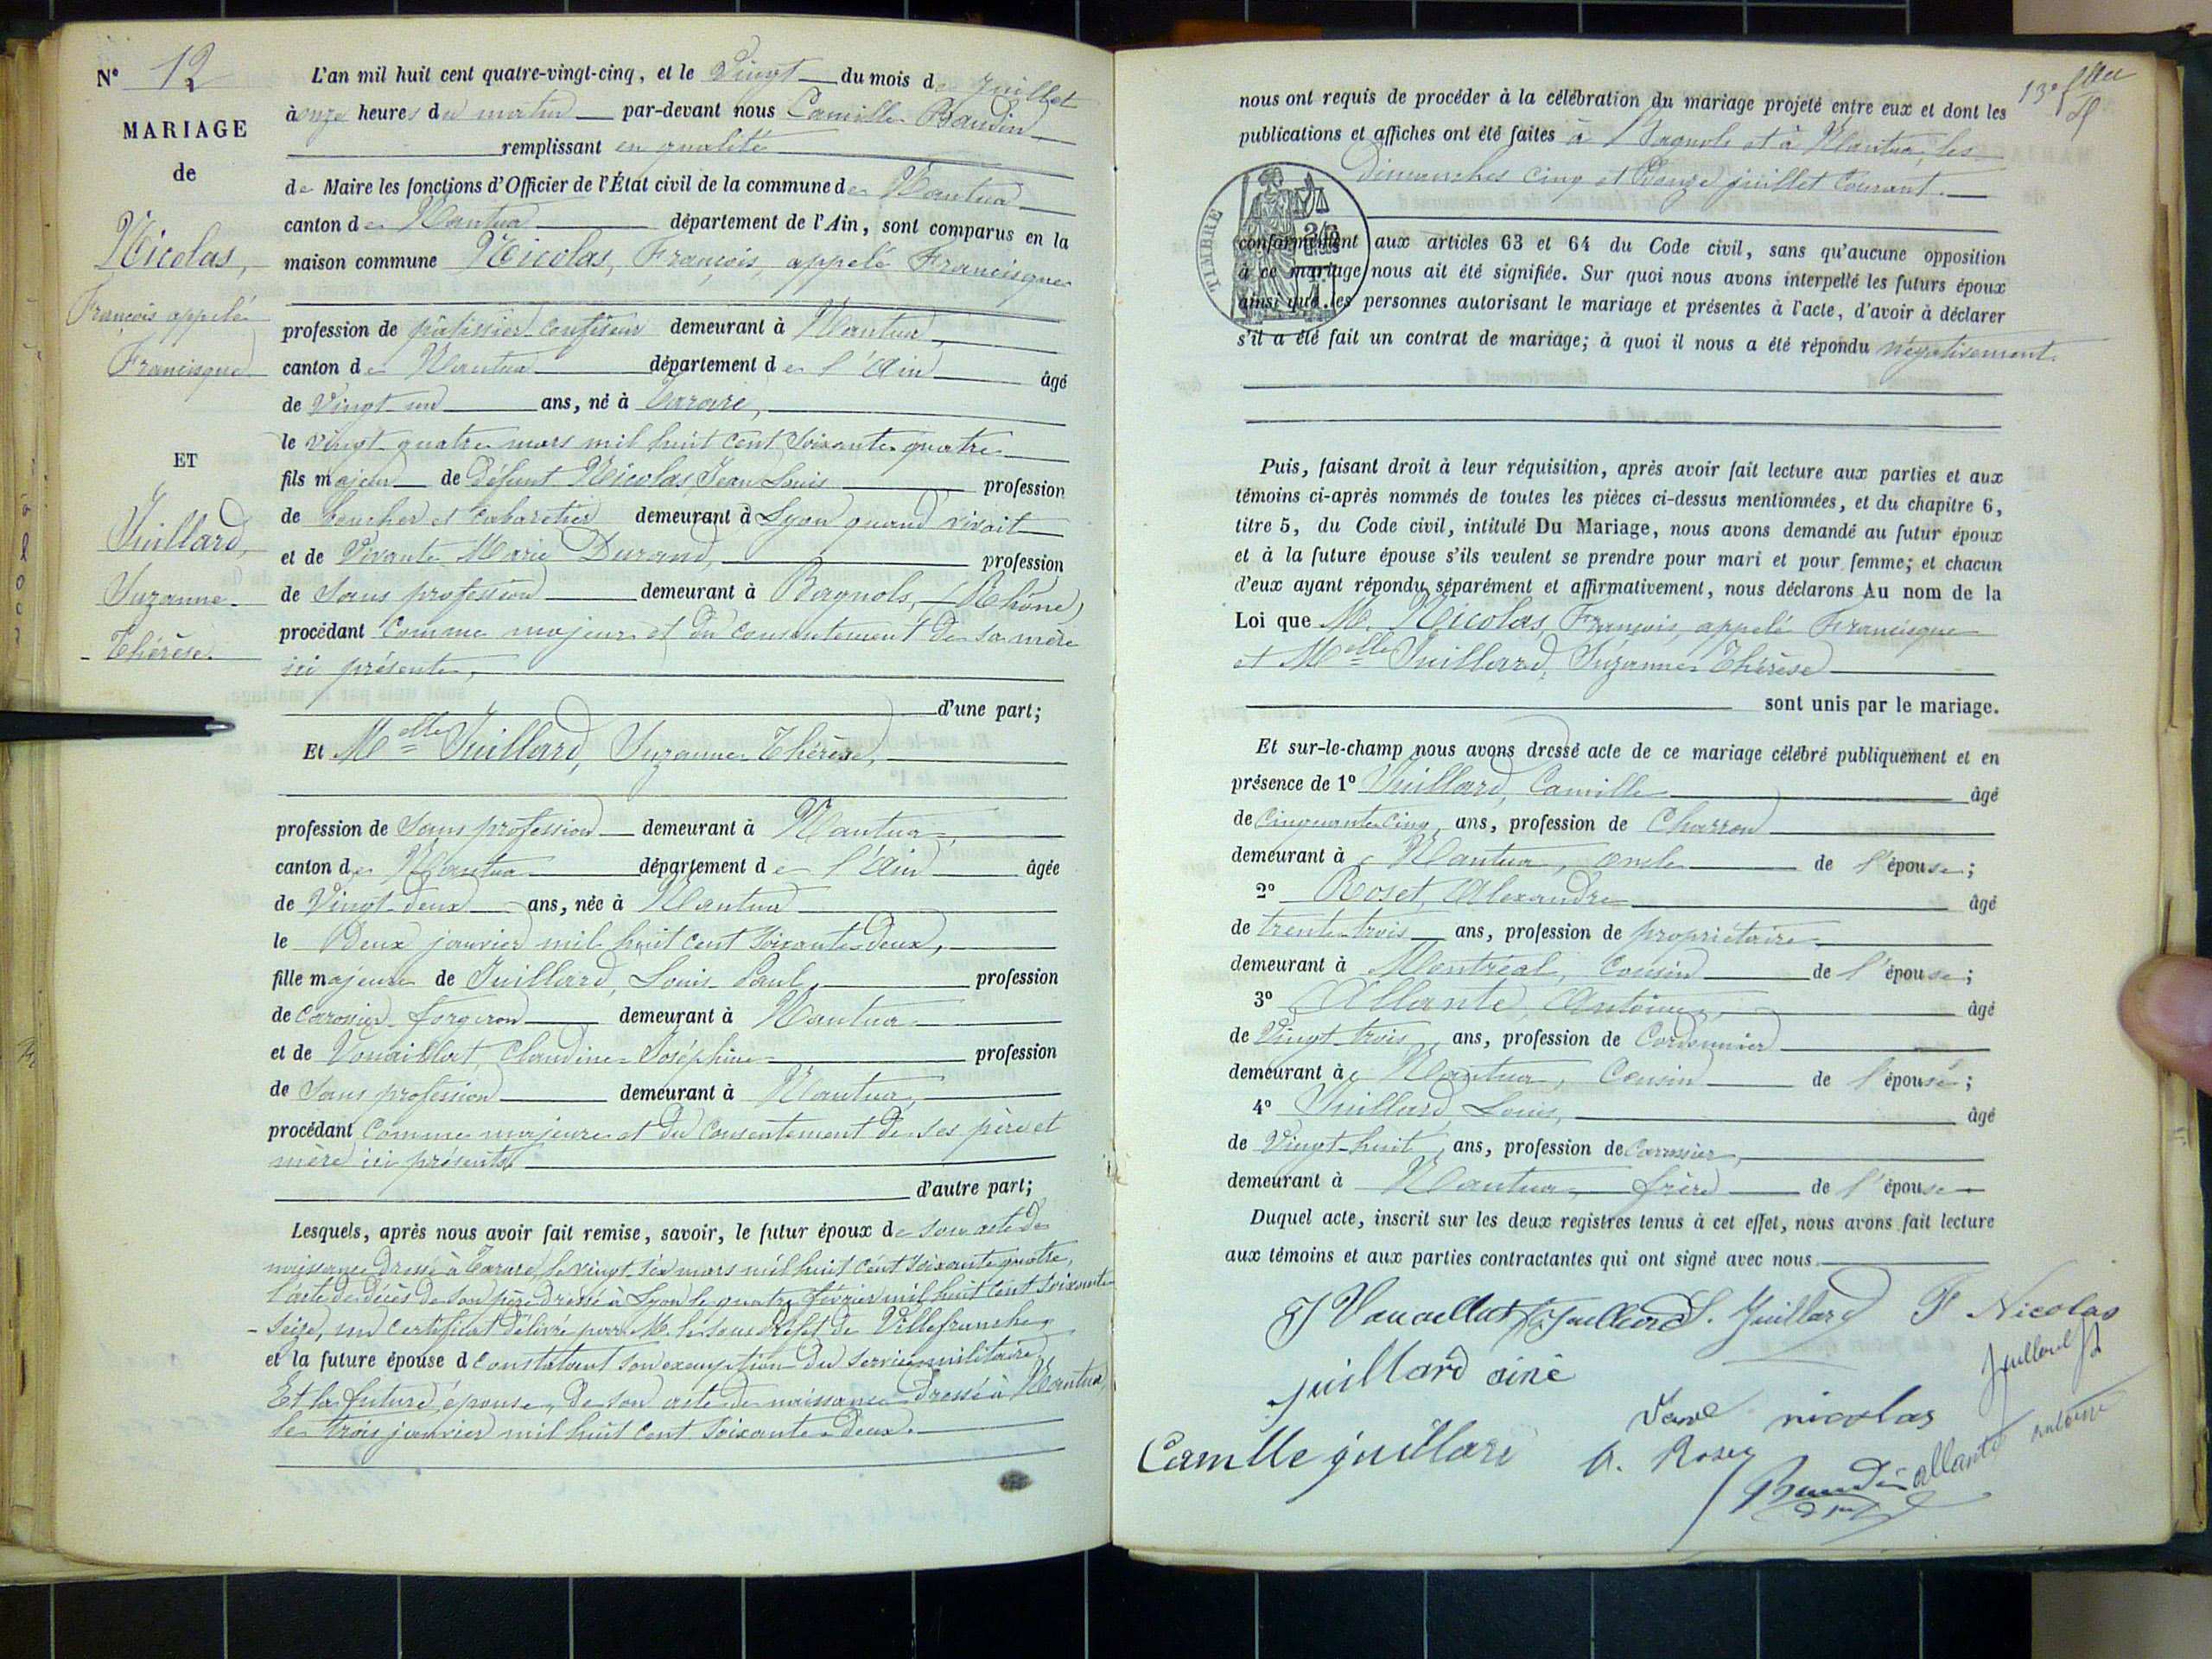 N° 12
MARIAGE
de
Nicolas,
François appelé
Francisque
ET
Juillard,
Suzanne-
-Thérèse.
L'an mil huit cent quatre-vingt-cinq, et le Vingt du mois de Juillet
à onze heures du matin par-devant nous Camille Baudin
remplissant en qualité
de Maire les fonctions d'Officier de l'État civil de la commune de Nantua
canton de Nantua département de l'Ain, sont comparus en la
maison commune Nicolas, François, appelé Francisque
profession de pâtissier-confiseur demeurant à Nantua,
canton de Nantua département de l'Ain âgé
de Vingt-un ans, né à Tarare,
le vingt-quatre mars mil huit cent soixante-quatre
fils majeur de Défunt Nicolas, Jean Louis profession
de boucher et cabaretier demeurant à Lyon quand vivait
et de Vivante Marie Durand, profession
de Sans profession demeurant à Bagnols, (Rhône)
procédant comme majeur et du consentement de sa mère
ici présente,
d'une part;
Et Melle Juillard, Suzanne Thérèse,
profession de Sans profession demeurant à Nantua,
canton de Nantua département de l'Ain âgée
de Vingt-deux ans, née à Nantua
le Deux janvier mil huit cent soixante-deux,
fille majeure de Juillard, Louis Paul, profession
de Carossier-forgeron demeurant à Nantua
et de Vouaillat, Claudine-Joséphine profession
de Sans profession demeurant à Nantua,
procédant comme majeure et du consentement de ses père et
mère ici présents
d'autre part;
Lesquels, après nous avoir fait remise, savoir, le futur époux de son acte de
naissance dressé à Tarare, le vingt-six mars mil huit cent soixante quatre,
l'acte de décès de son père dressé à Lyon le quatre février mil huit cent soixante-
-seize, un certificat délivré par M. le sous-Préfet de Villefranche
et la future épouse d constatant son exemption du service militaire,
Et la future épouse, de son acte de naissance dressé à Nantua,
le trois janvier mil huit cent soixante-deux.
13e
nous ont requis de procéder à la célébration du mariage projeté entre eux et dont les
publications et affiches ont été faites à Bagnols et à Nantua, les
Dimanches cinq et Douze juillet Courant.
TIMBRE
conformément aux articles 63 et 64 du Code civil, sans qu'aucune opposition
à ce mariage nous ait été signifiée. Sur quoi nous avons interpellé les futurs époux
ainsi que les personnes autorisant le mariage et présentes à l'acte, d'avoir à déclarer
s'il a été fait un contrat de mariage; à quoi il nous a été répondu négativement.
Puis, faisant droit à leur réquisition, après avoir fait lecture aux parties et aux
témoins ci-après nommés de toutes les pièces ci-dessus mentionnées, et du chapitre 6,
titre 5, du Code civil, intitulé Du Mariage, nous avons demandé au futur époux
et à la future épouse s'ils veulent se prendre pour mari et pour femme; et chacun
d'eux ayant répondu séparément et affirmativement, nous déclarons Au nom de la
Loi que M. Nicolas, François, appelé Francisque
et Melle Juillard, Suzanne Thérèse
sont unis par le mariage.
Et sur-le-champ nous avons dressé acte de ce mariage célébré publiquement et en
présence de 1° Juillard, Camille âgé
de Cinquante-cinq ans, profession de Charron
demeurant à Nantua, oncle de l'épouse;
2° Roset, Alexandre âgé
de trente-trois ans, profession de propriétaire
demeurant à Montréal, Cousin de l'épouse;
3° Allante, Antoine, âgé
de Vingt-trois ans, profession de Cordonnier
demeurant à Nantua, Cousin de l'épouse;
4° Juillard, Louis, âgé
de Vingt-huit ans, profession de Carossier,
demeurant à Nantua, frère de l'épouse
Duquel acte, inscrit sur les deux registres tenus à cet effet, nous avons fait lecture
aux témoins et aux parties contractantes qui ont signé avec nous
J Vouaillat Juillard S. Juillard F Nicolas
juillard ainé
Juillard
Veuve nicolas
Camille juillard A. Roset
Baudin allante antoine